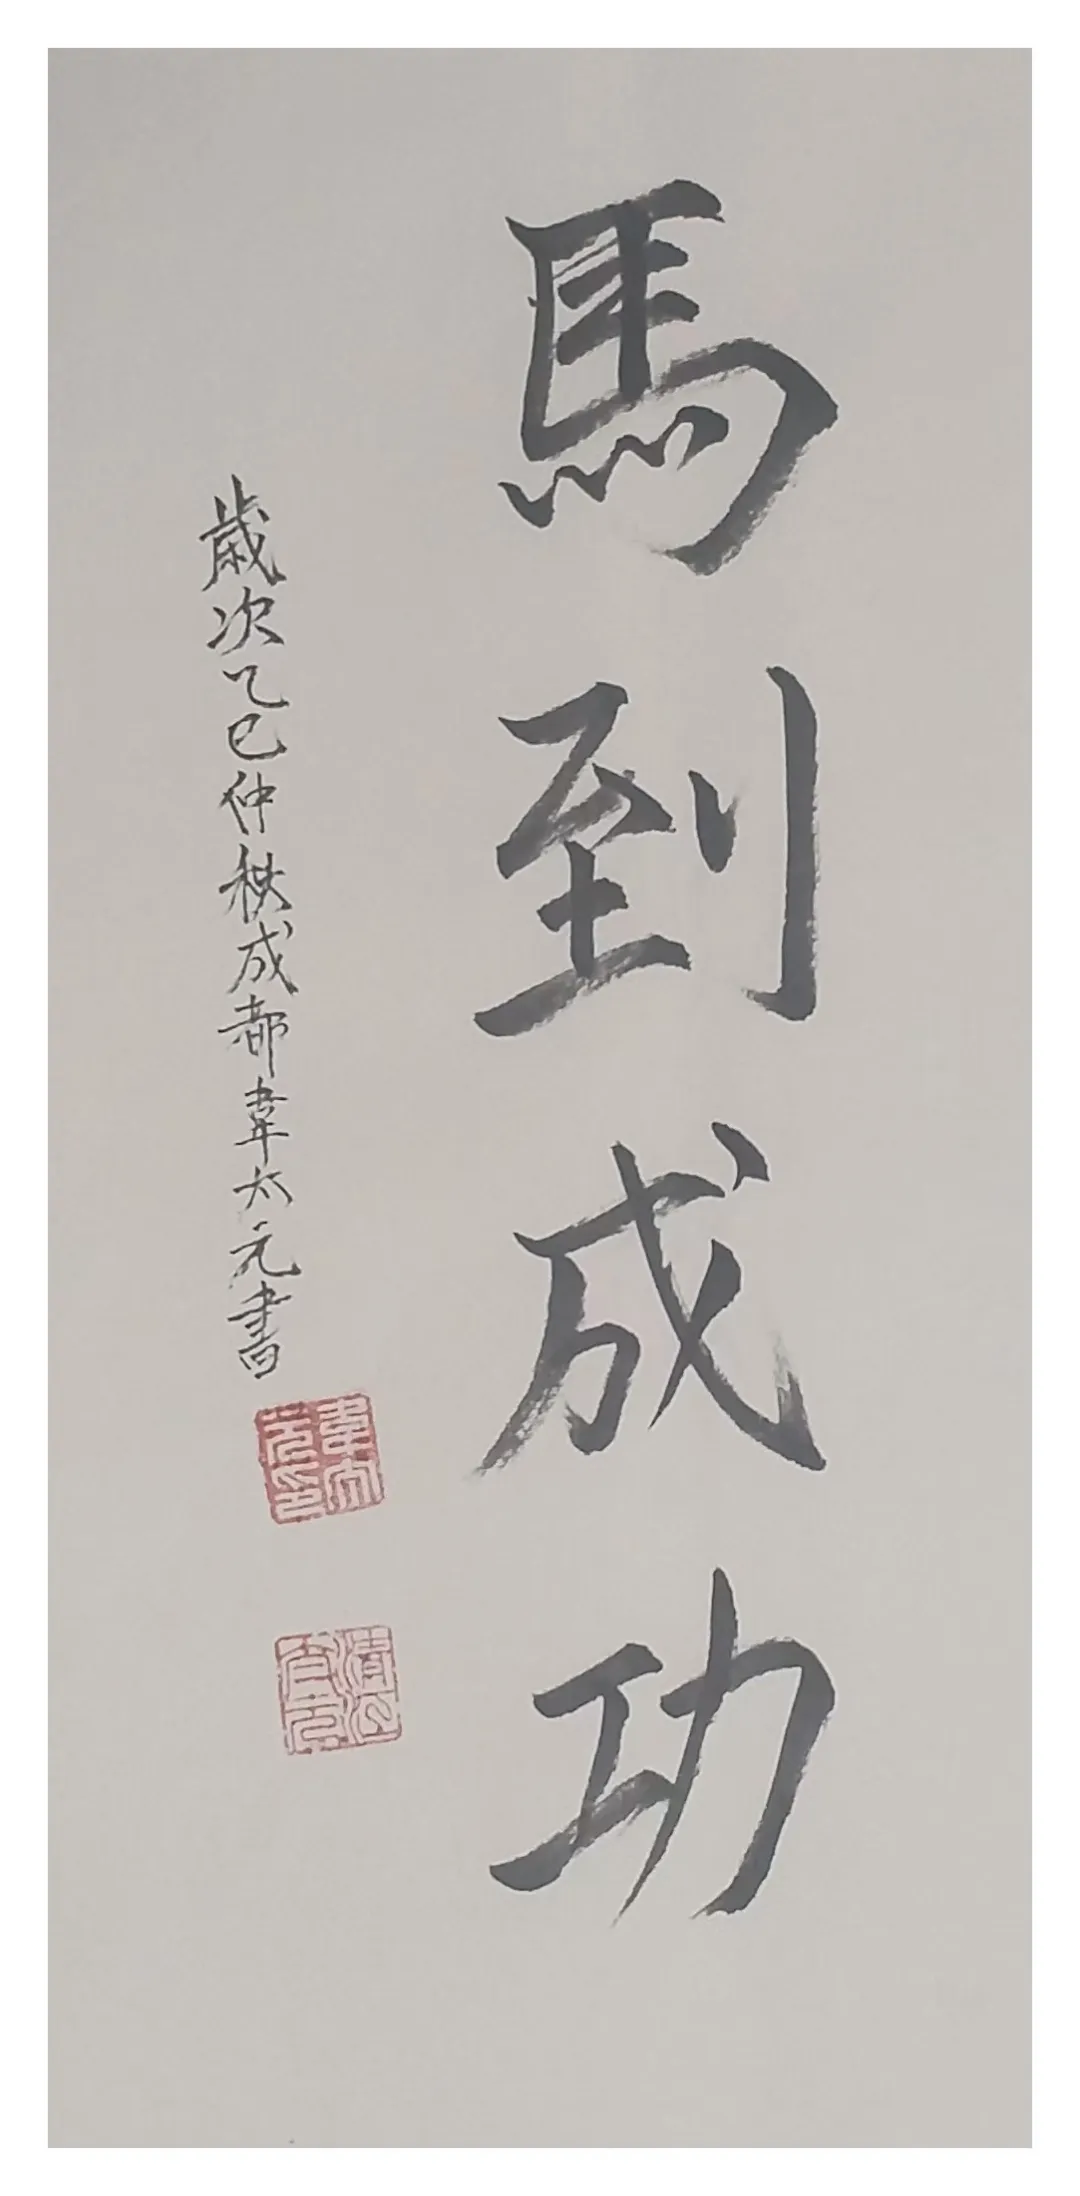 馬到成功
歲次乙巳仲秋成都韋太元書